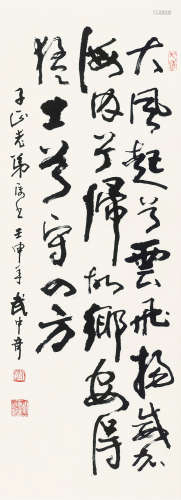 大風起兮雲飛揚威加
海内兮歸故鄉安得
猛士兮守四方
子正老弟 壬申年武中奇